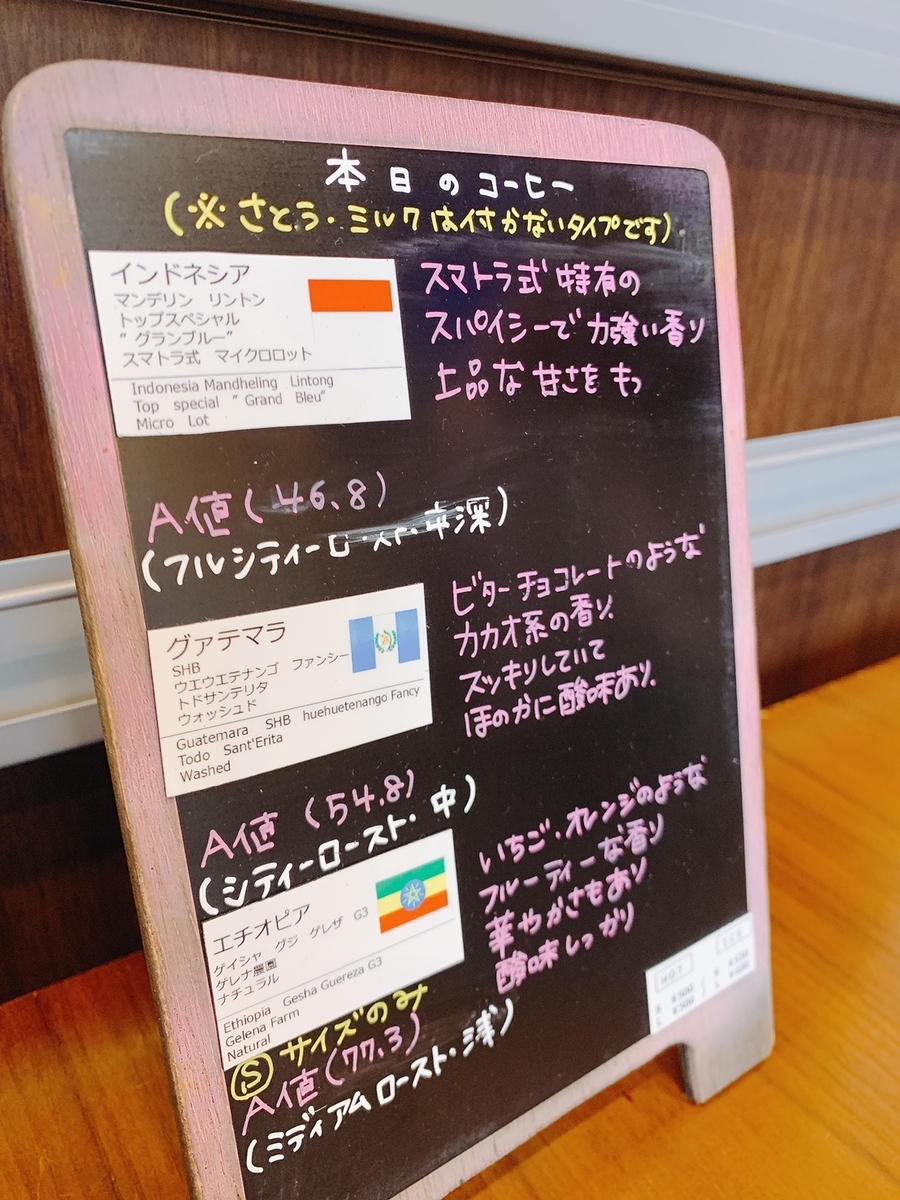 本日のコーヒー
(※さとう・ミルクは付かないタイプです)
インドネシア
マンデリン リントン
トップスペシャル
"グランブルー"
スマトラ式 マイクロロット
Indonesia Mandheling Lintong
Top special "Grand Bleu"
Micro Lot
スマトラ式特有の
スパイシーで力強い香り
上品な甘さをもつ
A値(46.8)
(フルシティーロースト・中深)
グァテマラ
SHB
ウエウエテナンゴ ファンシー
トドサンテリタ
ウォッシュド
Guatemara SHB huehuetenango Fancy
Todo Sant'Erita
Washed
ビターチョコレートのような
カカオ系の香り
スッキリしていて
ほのかに酸味あり
A値(54.8)
(シティーロースト・中)
エチオピア
ゲイシャ グジ ゲレザ G3
ゲレナ農園
ナチュラル
Ethiopia Gesha Guereza G3
Gelena Farm
Natural
いちご・オレンジのような
フルーティーな香り
華やかさもあり
酸味しっかり
Ⓢサイズのみ
A値(77.3)
(ミディアムロースト・浅)
HOT